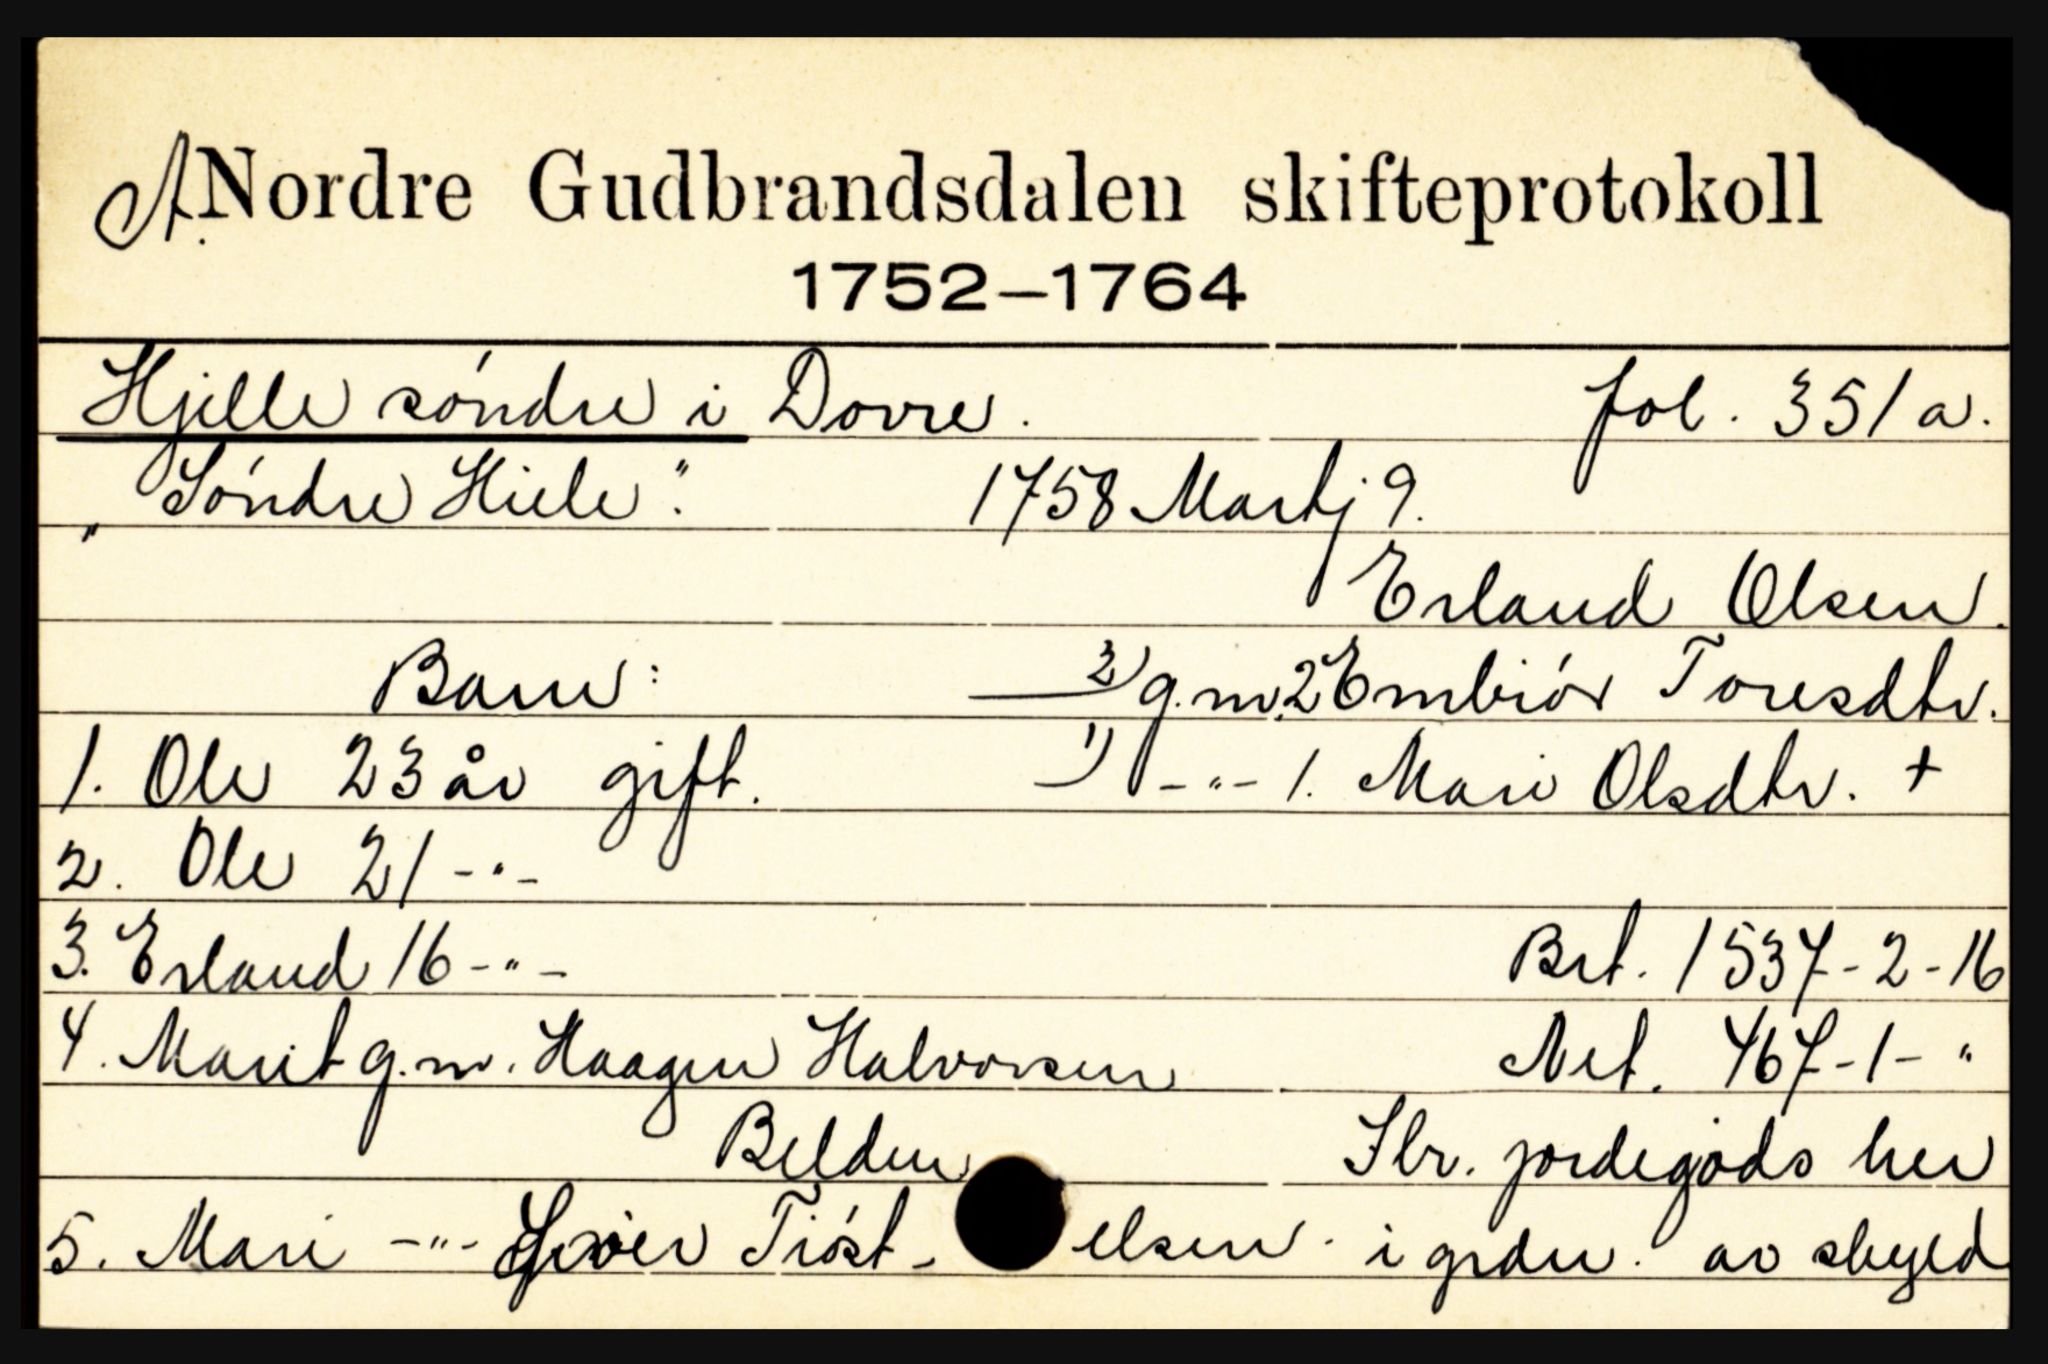 A. Nordre Gudbrandsdalen skifteprotokoll
1752–1764
Hjelle søndre i Dovre. fol. 351 a.
„Søndre Hiele". 1758 Martj 9.
Erland Olsen.
Barn: 2) g.m. 2 Embiør Toresdtr.
1. Ole 23 år gift. 1) -"- 1. Mari Olsdtr. +
2. Ole 21 -"-
3. Erland 16 -"- Brt. 1537-2-16
4. Marit g.m. Haagen Halvorsen Net. 467-1-"
Belden Ibr. jordegods her
5. Mari -"- Siver Tiøst-elsen. i grdn. av skyld